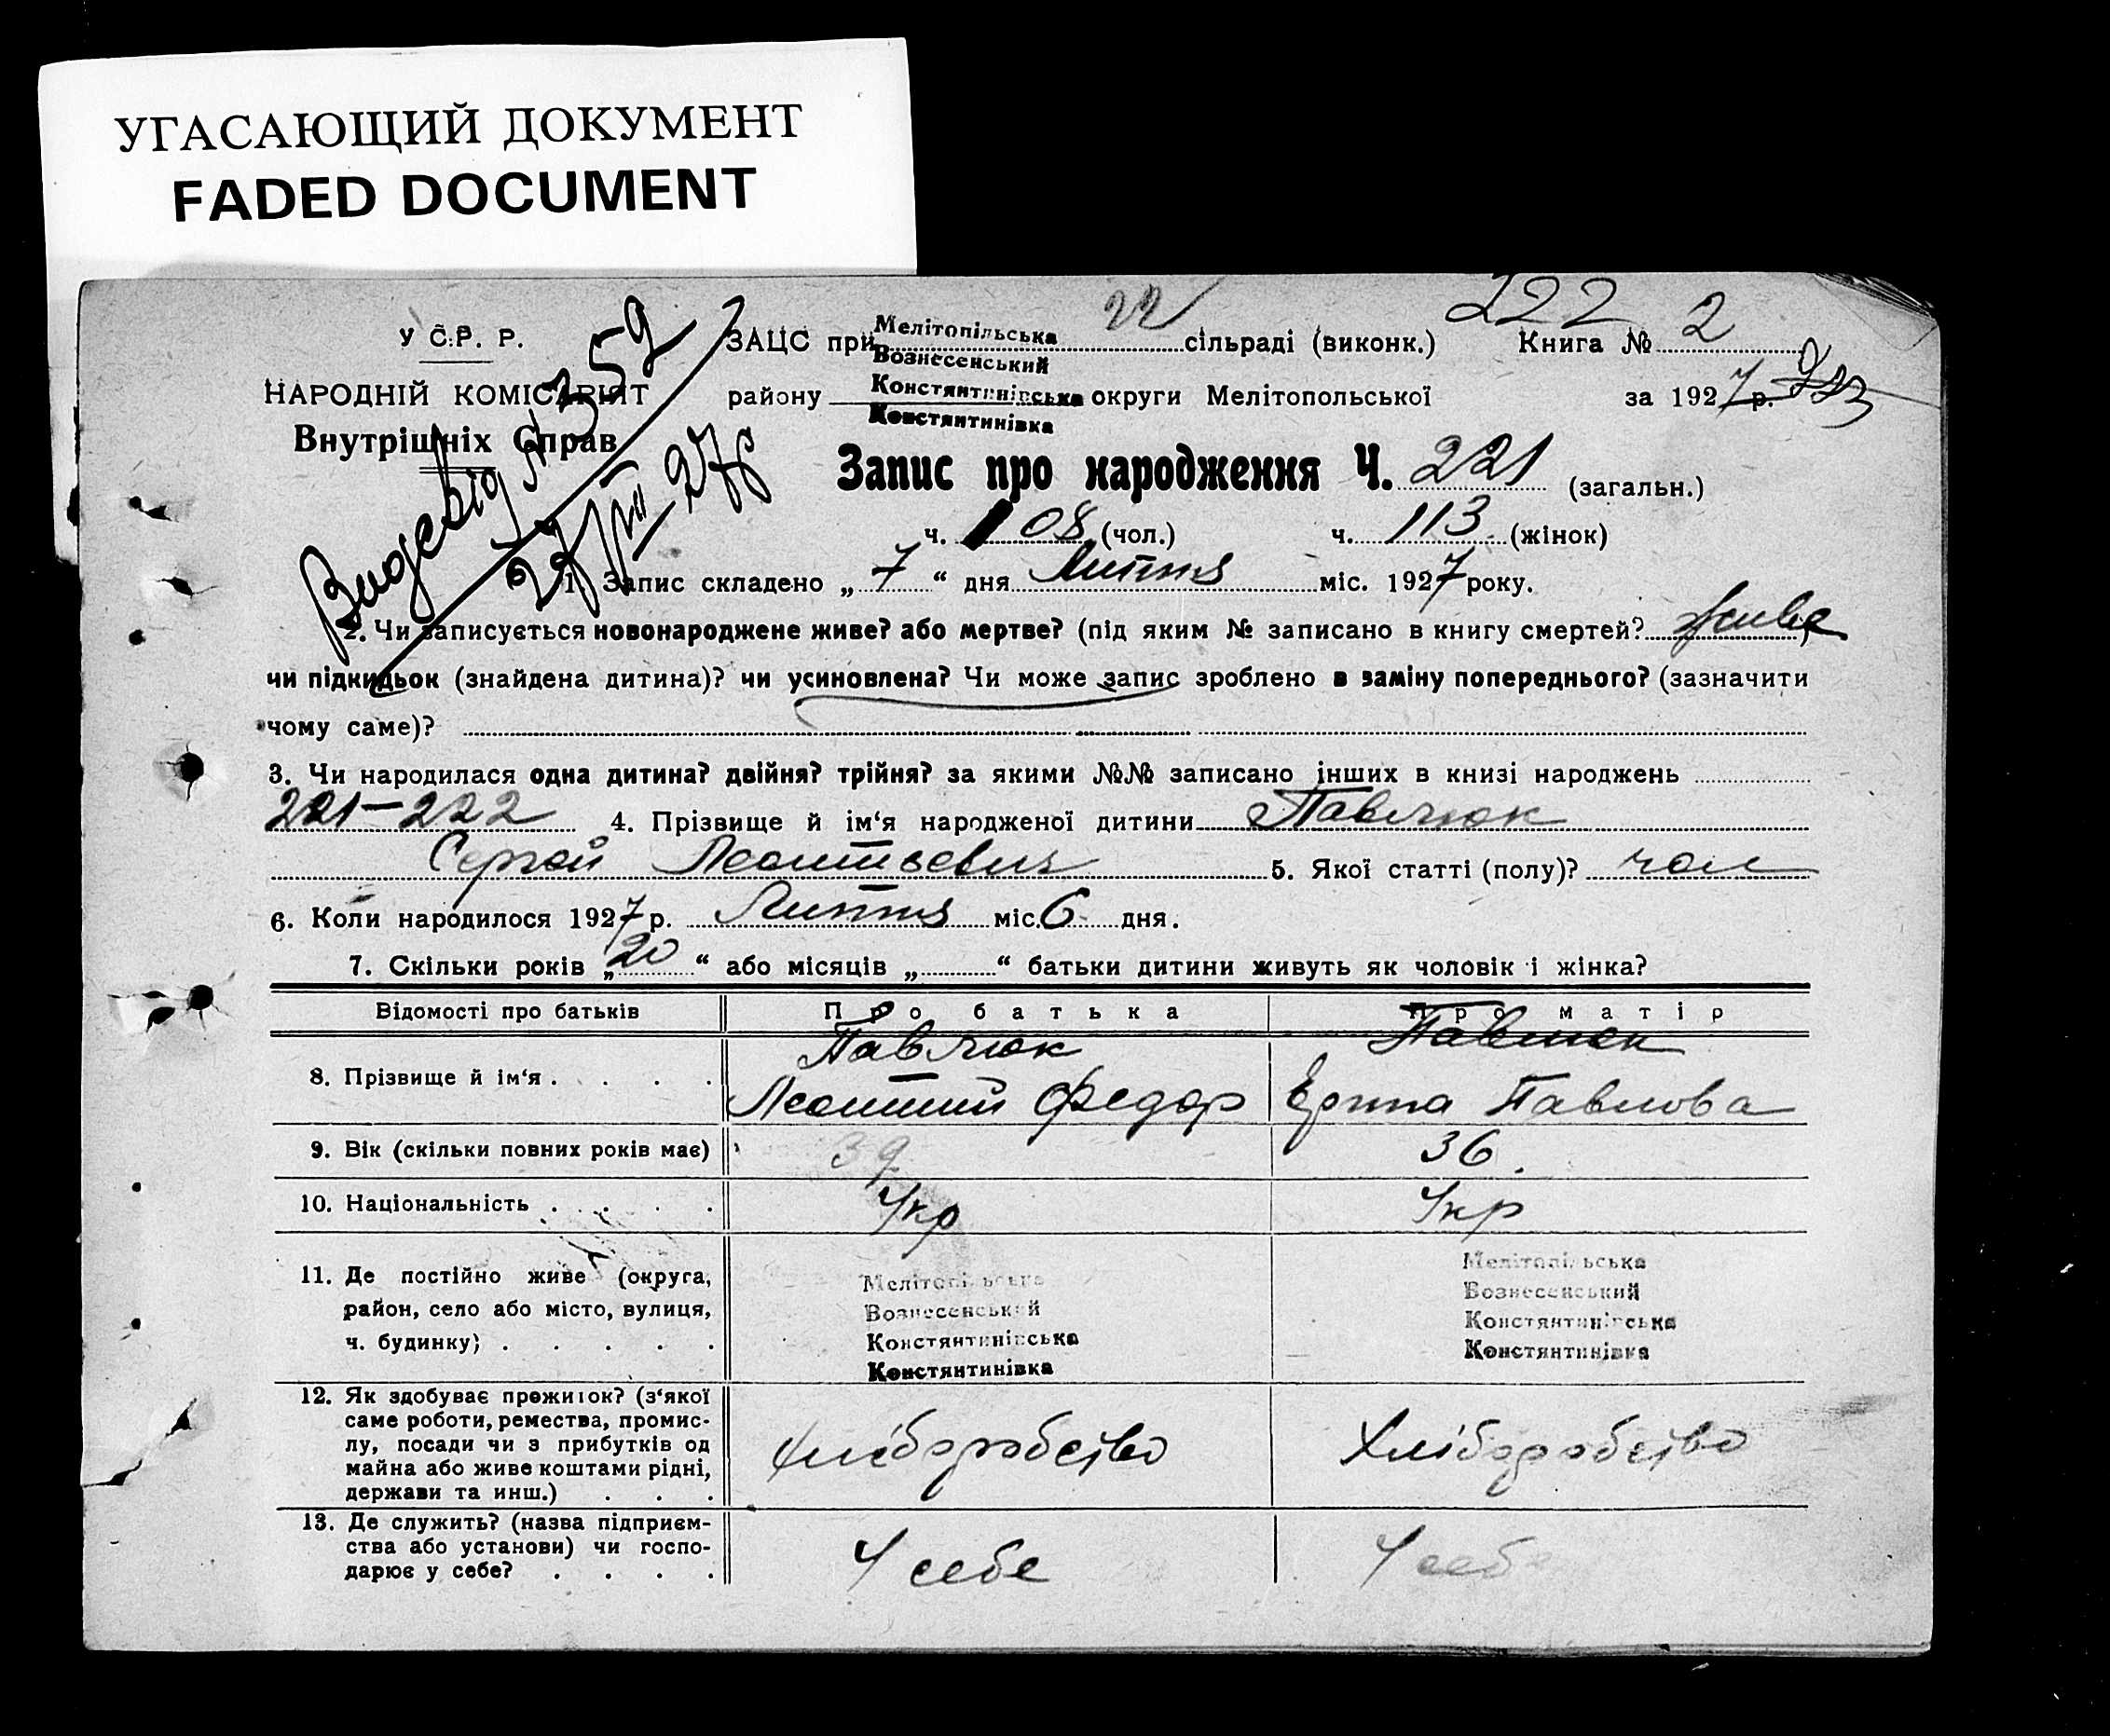 УГАСАЮЩИЙ ДОКУМЕНТ
FADED DOCUMENT
22
222
У С. Р. Р.
ЗАЦС при Мелітопільська сільраді (виконк.) Книга № 2
Вознесенський
НАРОДНІЙ КОМІСАРІЯТ
району Констянтинівська округи Мелітопольської за 1927 р.
Констянтинівка
Внутрішніх Справ
№ 352
27/VII 27р
Запис про народження Ч. 221 (загальн.)
ч. 108 (чол.) ч. 113 (жінок)
1. Запис складено „ 7 “ дня Липня міс. 1927 року.
2. Чи записується новонароджене живе? або мертве? (під яким № записано в книгу смертей? живе
чи підкидьок (знайдена дитина)? чи усиновлена? Чи може запис зроблено в заміну попереднього? (зазначити
чому саме)?
3. Чи народилася одна дитина? двійня? трійня? за якими №№ записано інших в книзі народжень
221–222 4. Прізвище й ім‘я народженої дитини Павлюк
Сергей Леонтьевич 5. Якої статті (полу)? чол
6. Коли народилося 1927 р. Липня міс. 6 дня.
7. Скільки років „ 20 “ або місяців „ “ батьки дитини живуть як чоловік і жінка?
Відомості про батьків Про батька Про матір
8. Прізвище й ім‘я . . . . Павлюк Леонтий Федор Павлюк Ерина Павлова
9. Вік (скільки повних років має) 39 36.
10. Національність . . . . Укр Укр
11. Де постійно живе (округа,
район, село або місто, вулиця,
ч. будинку) . . . . .
Мелітопільська
Вознесенський
Констянтинівська
Констянтинівка
Мелітопільська
Вознесенський
Констянтинівська
Констянтинівка
12. Як здобуває прожиток? (з‘якої
саме роботи, ремества, промис-
лу, посади чи з прибутків од
майна або живе коштами рідні,
держави та инш.) . . .
Хліборобство Хліборобство
13. Де служить? (назва підприєм-
ства або установи) чи госпо-
дарює у себе? . . . .
У себе У себе